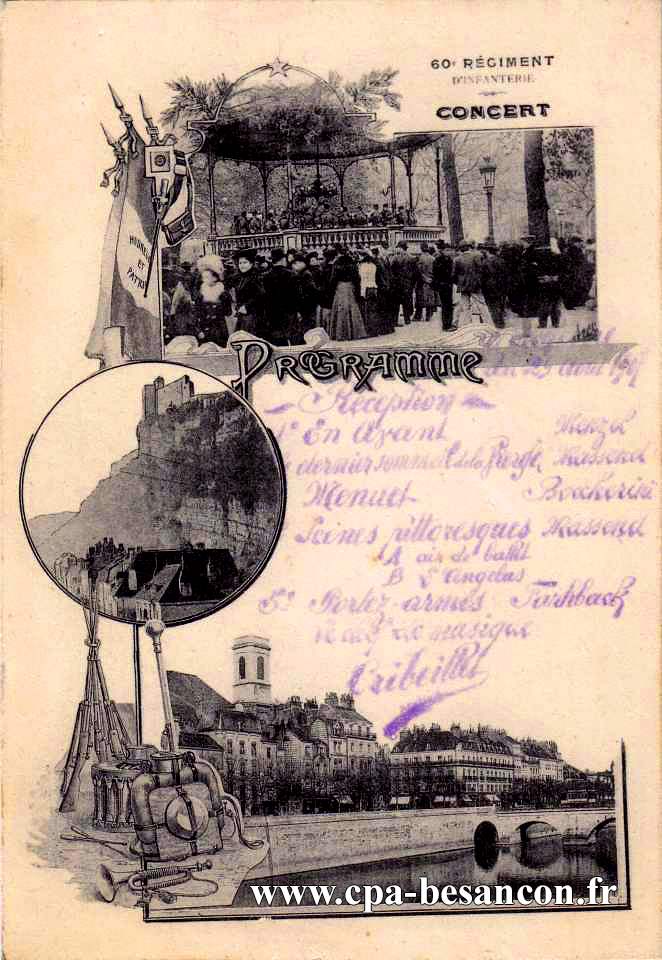 60e RÉGIMENT
D'INFANTERIE
CONCERT
HONNEUR
ET
PATRIE
PROGRAMME
du 23 août
Réception
1° En Avant Menzel
dernier sommeil de la Vierge Massenet
Menuet Boccherini
Scènes pittoresques Massenet
A air de ballet
B L'angelus
5° Portez-armes Farhback
le chef de musique
www.cpa-besancon.fr